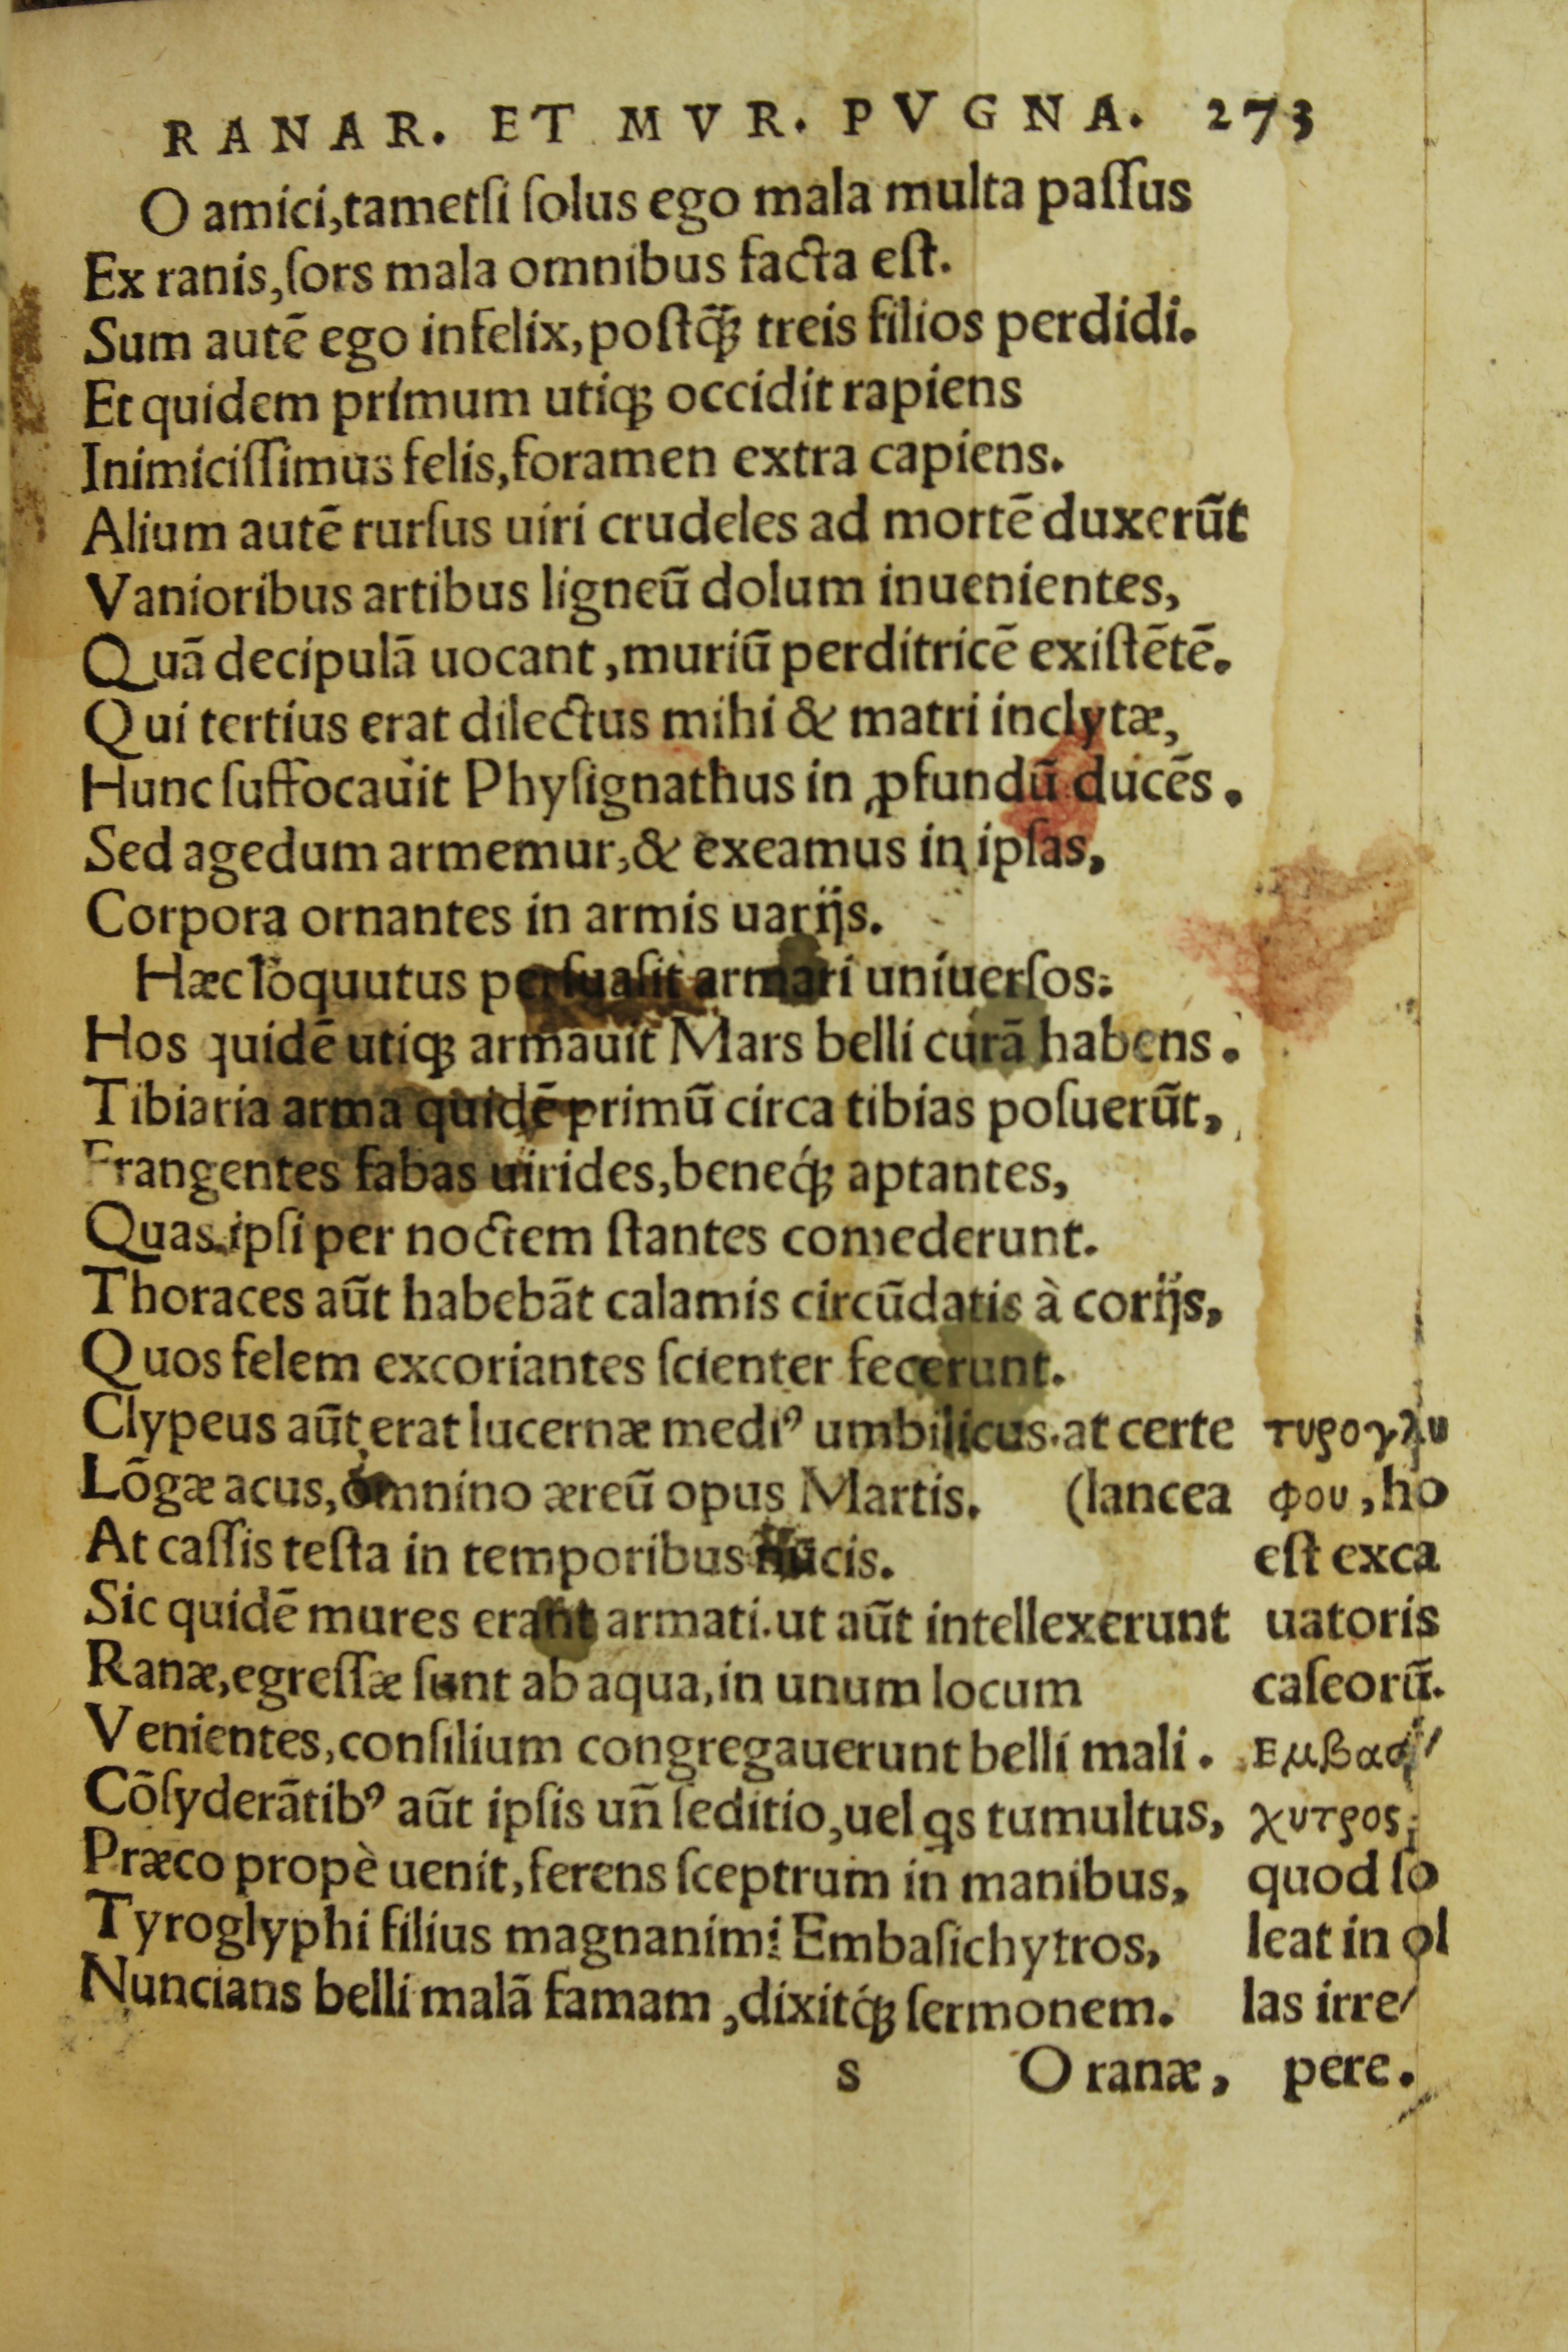 RANAR. ET MVR. PVGNA. 273
O amici,tametſi ſolus ego mala multa paſſus
Ex ranis,ſors mala omnibus facta eſt.
Sum autē ego infelix,poſtq̃ꝫ treis filios perdidi.
Et quidem primum utiqꝫ occidit rapiens
Inimiciſſimus felis,foramen extra capiens.
Alium autē rurſus uiri crudeles ad mortē duxerūt
Vanioribus artibus ligneū dolum inuenientes,
Quā decipulā uocant,muriū perditricē exiſtētē.
Qui tertius erat dilectus mihi & matri inclytæ,
Hunc ſuffocauit Phyſignathus in ꝓfundū ducēs.
Sed agedum armemur,& exeamus in ipſas,
Corpora ornantes in armis uarijs.
Hæc loquutus perſuaſit armari uniuerſos:
Hos quidē utiqꝫ armauit Mars belli curā habens.
Tibiaria arma quidē primū circa tibias poſuerūt,
Frangentes fabas uirides,beneq́ꝫ aptantes,
Quas ipſi per noctem ſtantes comederunt.
Thoraces aūt habebāt calamis circūdatis à corijs,
Quos felem excoriantes ſcienter fecerunt.
Clypeus aūt erat lucernæ mediꝰ umbilicus.at certe
Lōgæ acus,omnino æreū opus Martis. (lancea
At caſſis teſta in temporibus nucis.
Sic quidē mures erant armati.ut aūt intellexerunt
Ranæ,egreſſæ ſunt ab aqua,in unum locum
Venientes,conſilium congregauerunt belli mali.
Cōſyderātibꝰ aūt ipſis uñ ſeditio,uel qs tumultus,
Præco propè uenit,ferens ſceptrum in manibus,
Tyroglyphi filius magnanimi Embaſichytros,
Nuncians belli malā famam,dixitq́ꝫ ſermonem.
s O ranæ,
τυρογλυ
φου,ho
eſt exca
uatoris
caſeorū.
Εμβασί/
χυτρος,
quod ſo
leat in ol
las irre/
pere.